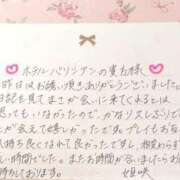 ホテルバリアンの貴方様
昨日はお誘い頂きありがとうございました。
日記を見てまさか会いに来てくれるとは
思ってもいなかったので、かなりスレぶりで
が会えて嬉しかったです。プレイもお互
持ちよくなれて良かったですし、相変わらず
い時間でした。またお時間が合いましたら
待ちております。